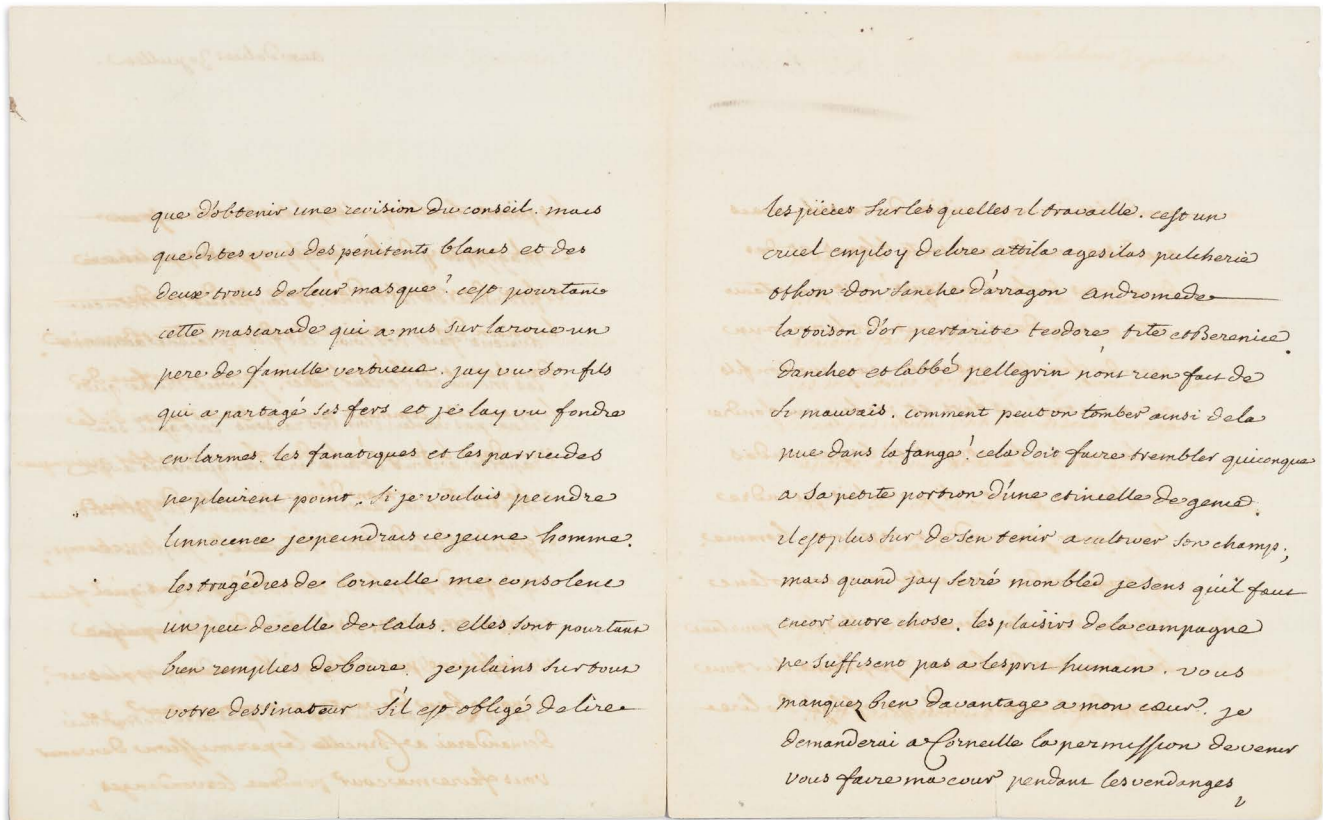 que d'obtenir une revision du conseil. mais
que dites vous des pénitents blancs et des
deux trous de leur masque? cest pourtant
cette mascarade qui a mis sur la roue un
pere de famille vertueux. jay vu son fils
qui a partagé ses fers et je lay vu fondre
en larmes. les fanatiques et les parricides
ne pleurent point. si je voulais peindre
linnocence je peindrais ce jeune homme.
les tragédies de Corneille me consolent
un peu de celle de Calas. elles sont pourtant
bien remplies de boue. je plains surtout
votre dessinateur s'il est obligé de lire
les piieces sur les quelles il travaille. cest un
cruel employ de lire attila agesilas pulcherie
othon don sanche d'arragon andromede
la toison d'or pertarite teodore tite et Berenice
danchet et labbé pellegrin n'ont rien fait de
si mauvais. comment peut on tomber ainsi de la
nue dans la fange! cela doit faire trembler quiconque
a sa petite portion d'une etincelle de genie.
il est plus sur de sen tenir a cultiver son champ;
mais quand jay serré mon bled je sens qu'il faut
encor autre chose. les plaisirs de la campagne
ne suffisent pas a lesprit humain. vous
manquez bien davantage a mon cœur. je
demanderai a Corneille la permission de venir
vous faire ma cour pendant les vendanges